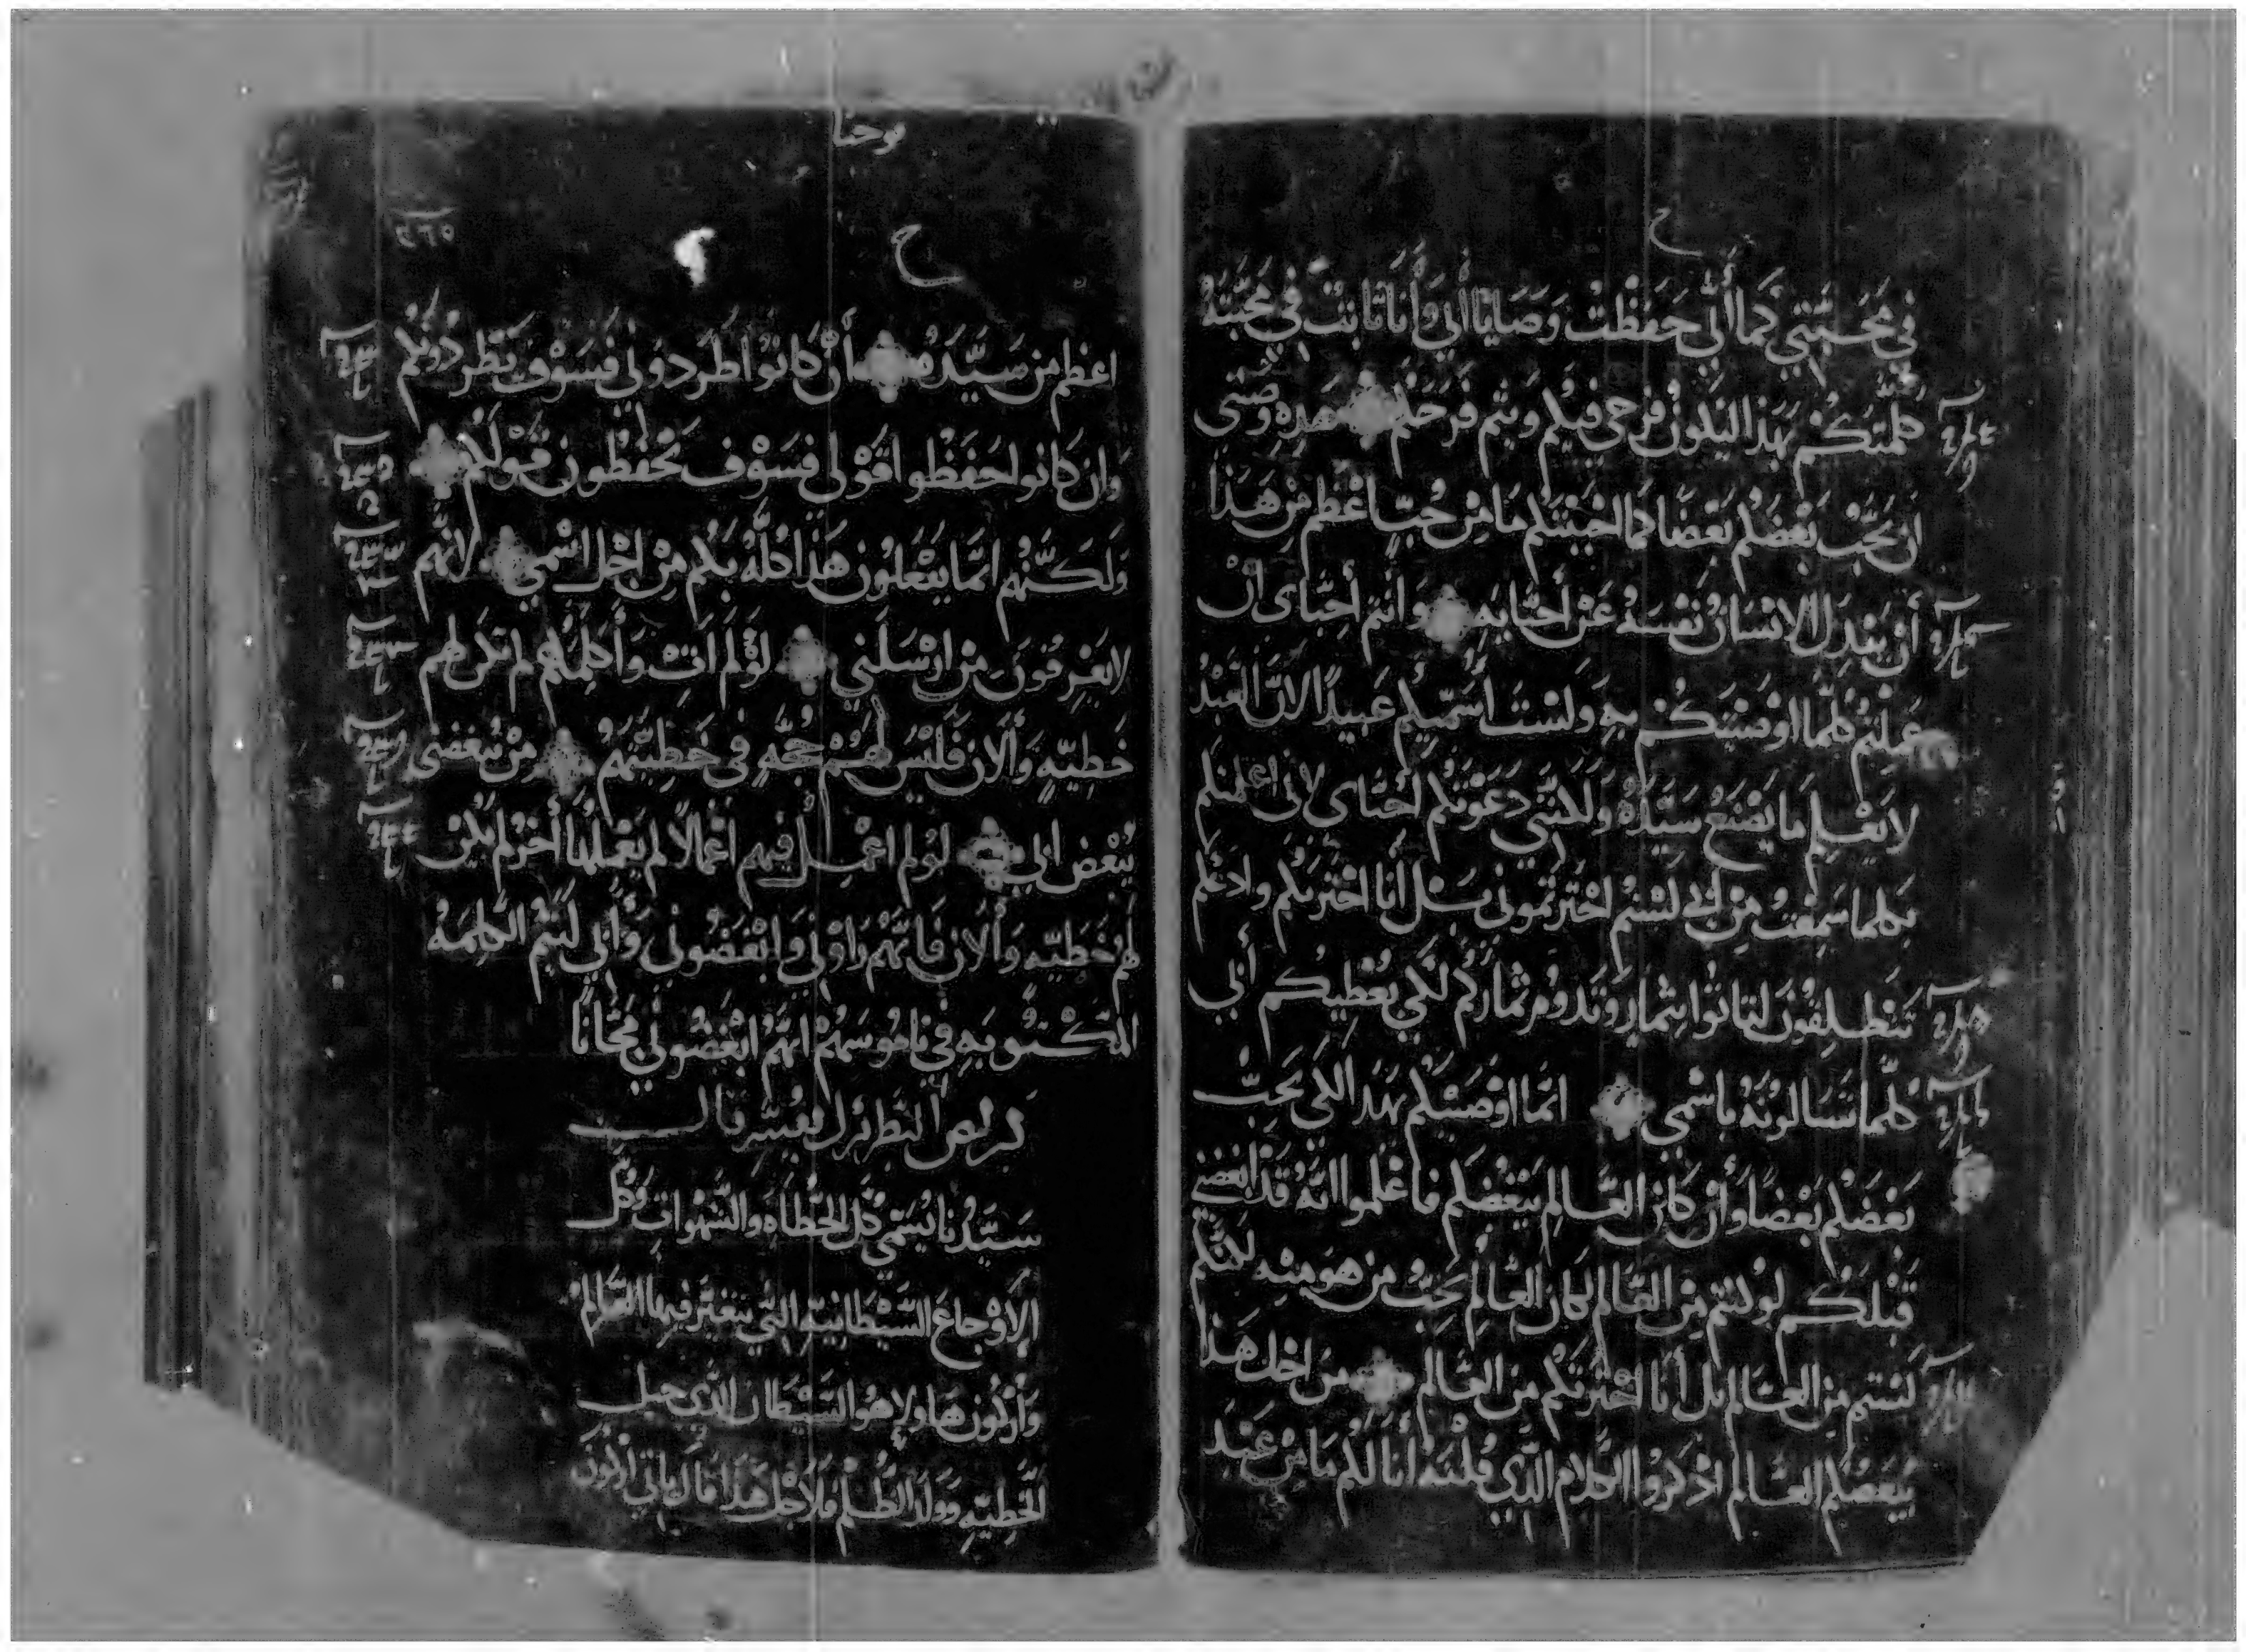 ح
في محبتي كما أني حفظت وصايا أبي وأنا ثابت في محبته
كلمتكم بهذا ليكون فرحي فيكم ويتم فرحكم هذه وصيتي
ان يحب بعضكم بعضا كما احببتكم ما من حب اعظم من هذا
أن يبذل الانسان نفسه عن أحبايه وانتم أحباى ان
عملتم كلما اوصيتكم به ولست اسميكم عبيدا لان العبد
لا يعلم ما يصنع سيده ولكنني دعوتكم احباى لانى اعلمتكم
بكلما سمعت من ابي لستم اخترتموني بل أنا اخترتكم وادعكم
تنطلقون لتاتوا بثمار وتدوم ثماركم لكي يعطيكم أبي
كلما تسالونه باسمي انما اوصيتكم بهذا لكي يحب
بعضكم بعضا وأن كان العالم يبغضكم فاعلموا انه قد ابغضني
قبلكم لو كنتم من العالم لكان العالم يحب من هو منه لكنكم
لستم من العالم بل أنا اخترتكم من العالم من اجل هذا
يبغضكم العالم اذكروا الكلام الذي قلته أنا لكم ما من عبد
يوحنا
٢٦٥
ح
اعظم من سيده أن كانوا طردوني فسوف يطردونكم
وان كانوا حفظوا قولي فسوف يحفظون قولكم
ولكنهم انما يفعلون هذا كله بكم من اجل اسمي لانهم
لا يعرفون من ارسلني لو لم ات وأكلمهم لم تكن لهم
خطيه وألان فليس لهم حجه في خطيتهم من يبغضني
يبغض أبي لو لم اعمل فيهم اعمالا لم يعملها أخر لم يكن
لهم خطيه وألان فانهم راوني وابغضوني وأبي لتتم الكلمه
المكتوبه في ناموسهم انهم ابغضوني مجانا
كرلص البطريرك يفسر قال
سيدنا يسمي كل الخطاه والشهوات وكل
الاوجاع الشيطانيه التي يتغير فيها العالم
وأركون هاولا هو الشيطان الذي حبل
الخطيه وولد الظلم فلاجل هذا قال ياتي اركون